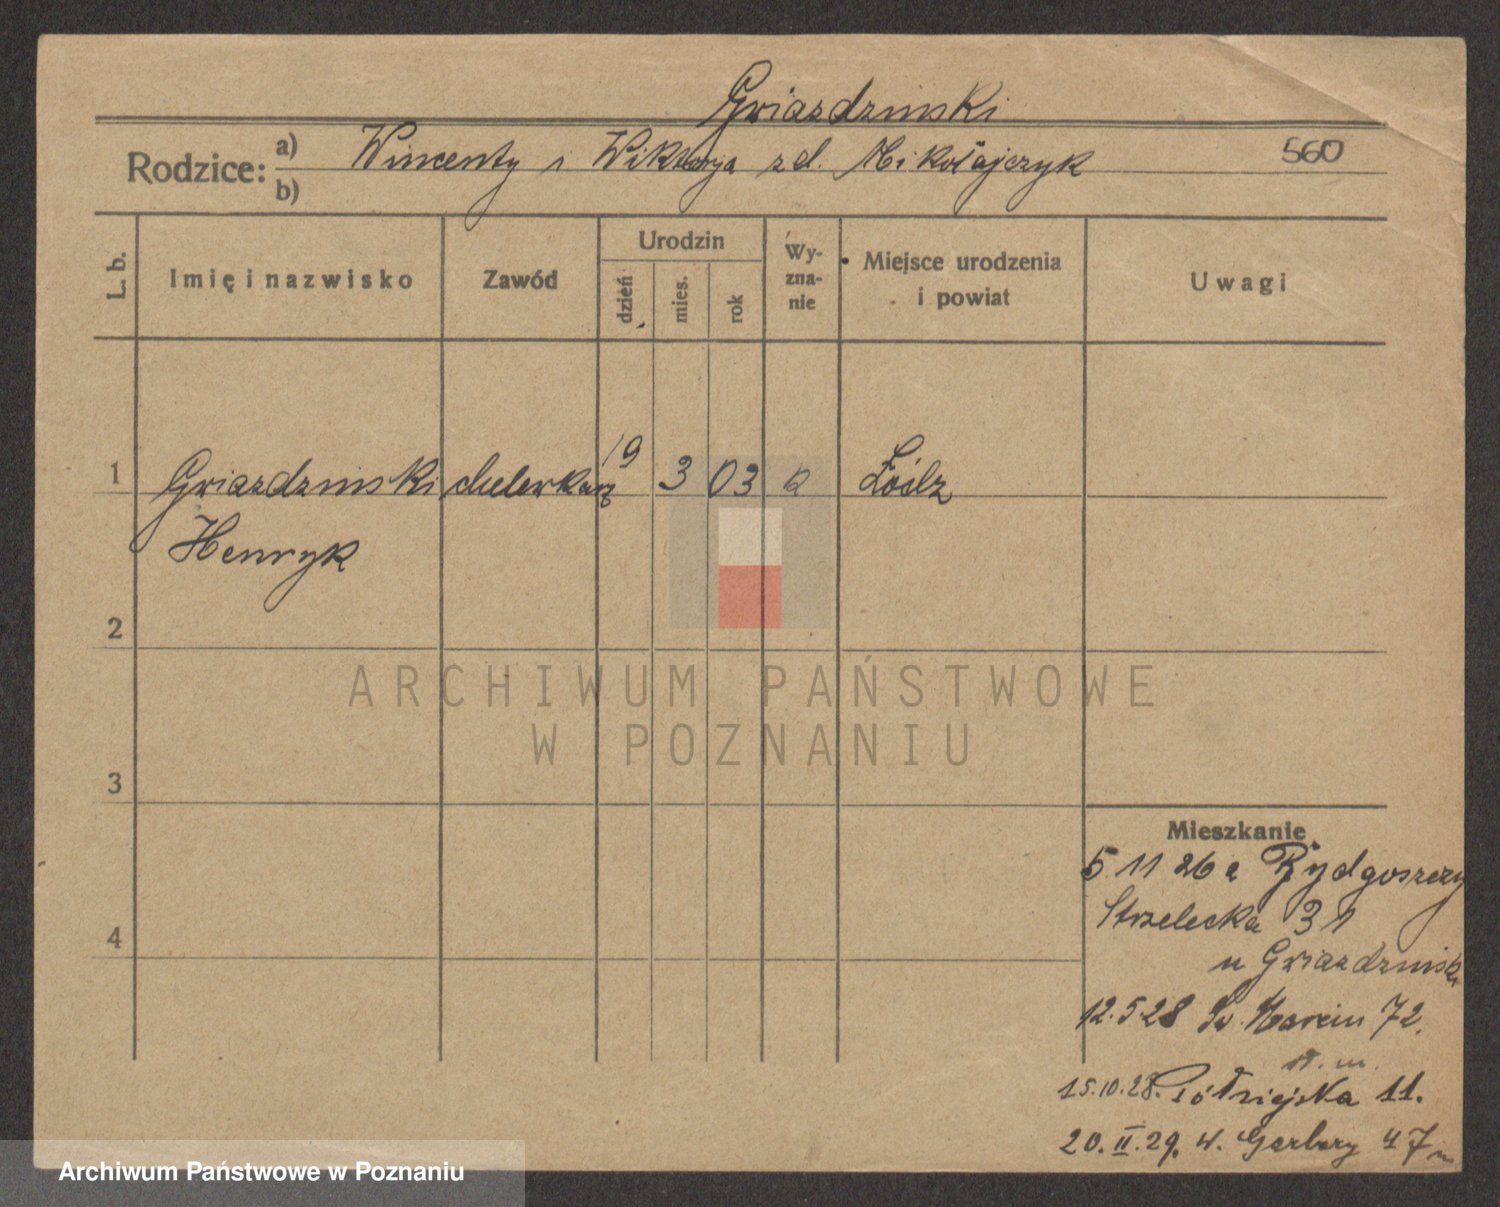 Gwiazdzinski
Rodzice: a) Wincenty i Wiktorya zd. Mikołajczyk 560
b)
L. b. Imię i nazwisko Zawód Urodzin dzień mies. rok Wy-zna-nie Miejsce urodzenia i powiat Uwagi
1 Gwiazdzinski 19 3 03 Łódz
Henryk
2
ARCHIWUM PAŃSTWOWE
W POZNANIU
3
Mieszkanie
5 11 26 Bydgoszczy
4 Strzelecka 31
u Gwiazdzinski
12.5.28 Św. Marcin 72.
15.10.28. Półwiejska 11.
20.II.29. W. Garbary 47
Archiwum Państwowe w Poznaniu